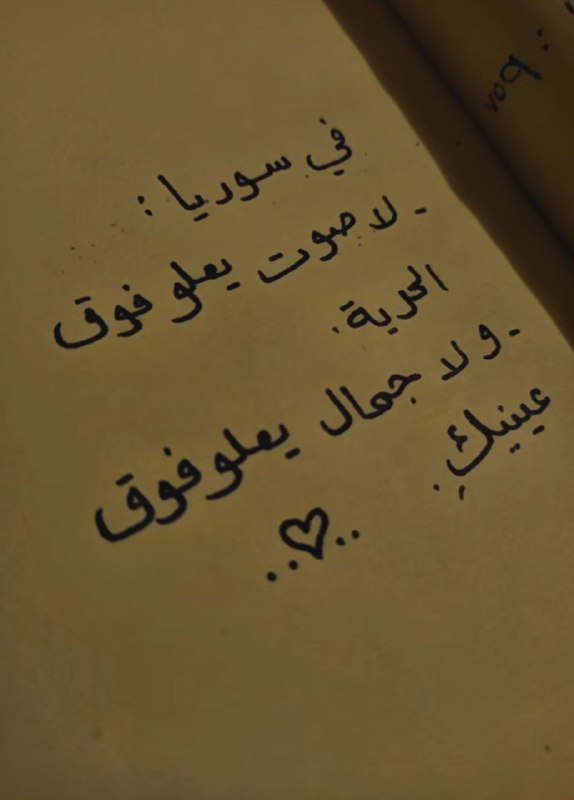 في سوريا :
- لا صوت يعلو فوق
الحرية.
- ولا جمال يعلو فوق
عينيكِ.
..♡..